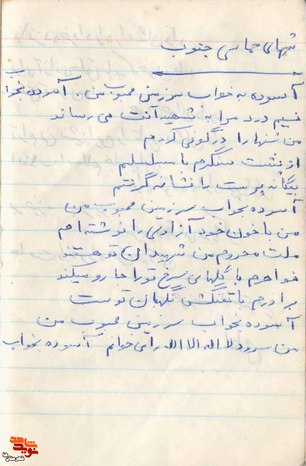 شبهای حماسی جنوب
آسوده به خواب سرزمین محبوب من، آسوده بخواب
نسیم درد مرا به شهیدانت می رساند
من شبها را در گلوئی گروم
از پشت سنگرم با مسلسلم
بیگانه پرست را نشانه گرفتم
آسوده بخواب سرزمین محبوب من
من با خون خود آزادی را نوشته ام
ملت محروم من شهیدان تو هستند
خواهرم با گلهای سرخ تو را جارو میکند
برادرم با تفنگش نگهبان توست
آسوده بخواب سرزمین محبوب من
من سرود لا اله الا الله را می خوانم آسوده بخواب
نوید شاهد